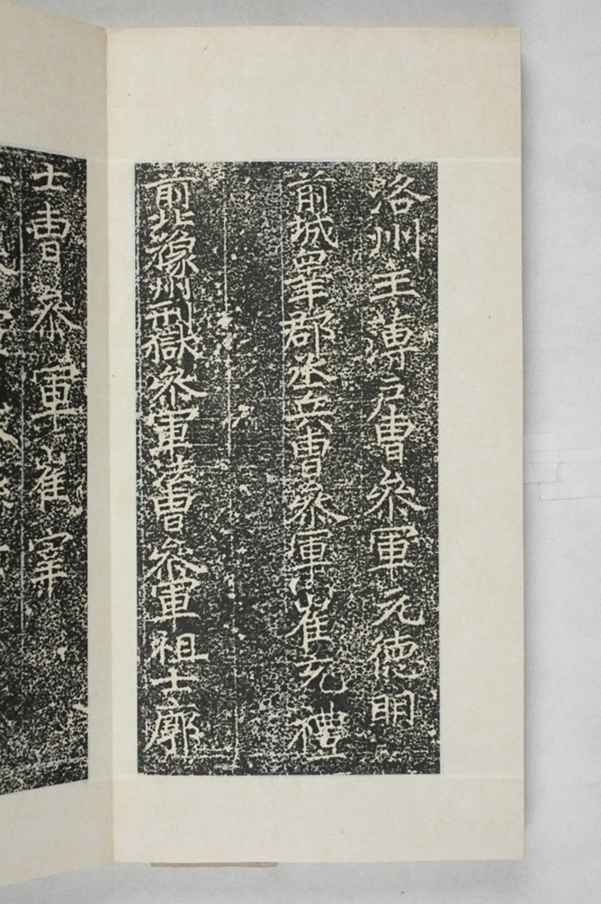 洛州主薄戶曹參軍元德明
前城皐郡丞兵曹參軍崔禮
前北豫州刑獄參軍法曹參軍祖士廓
士曹參軍崔